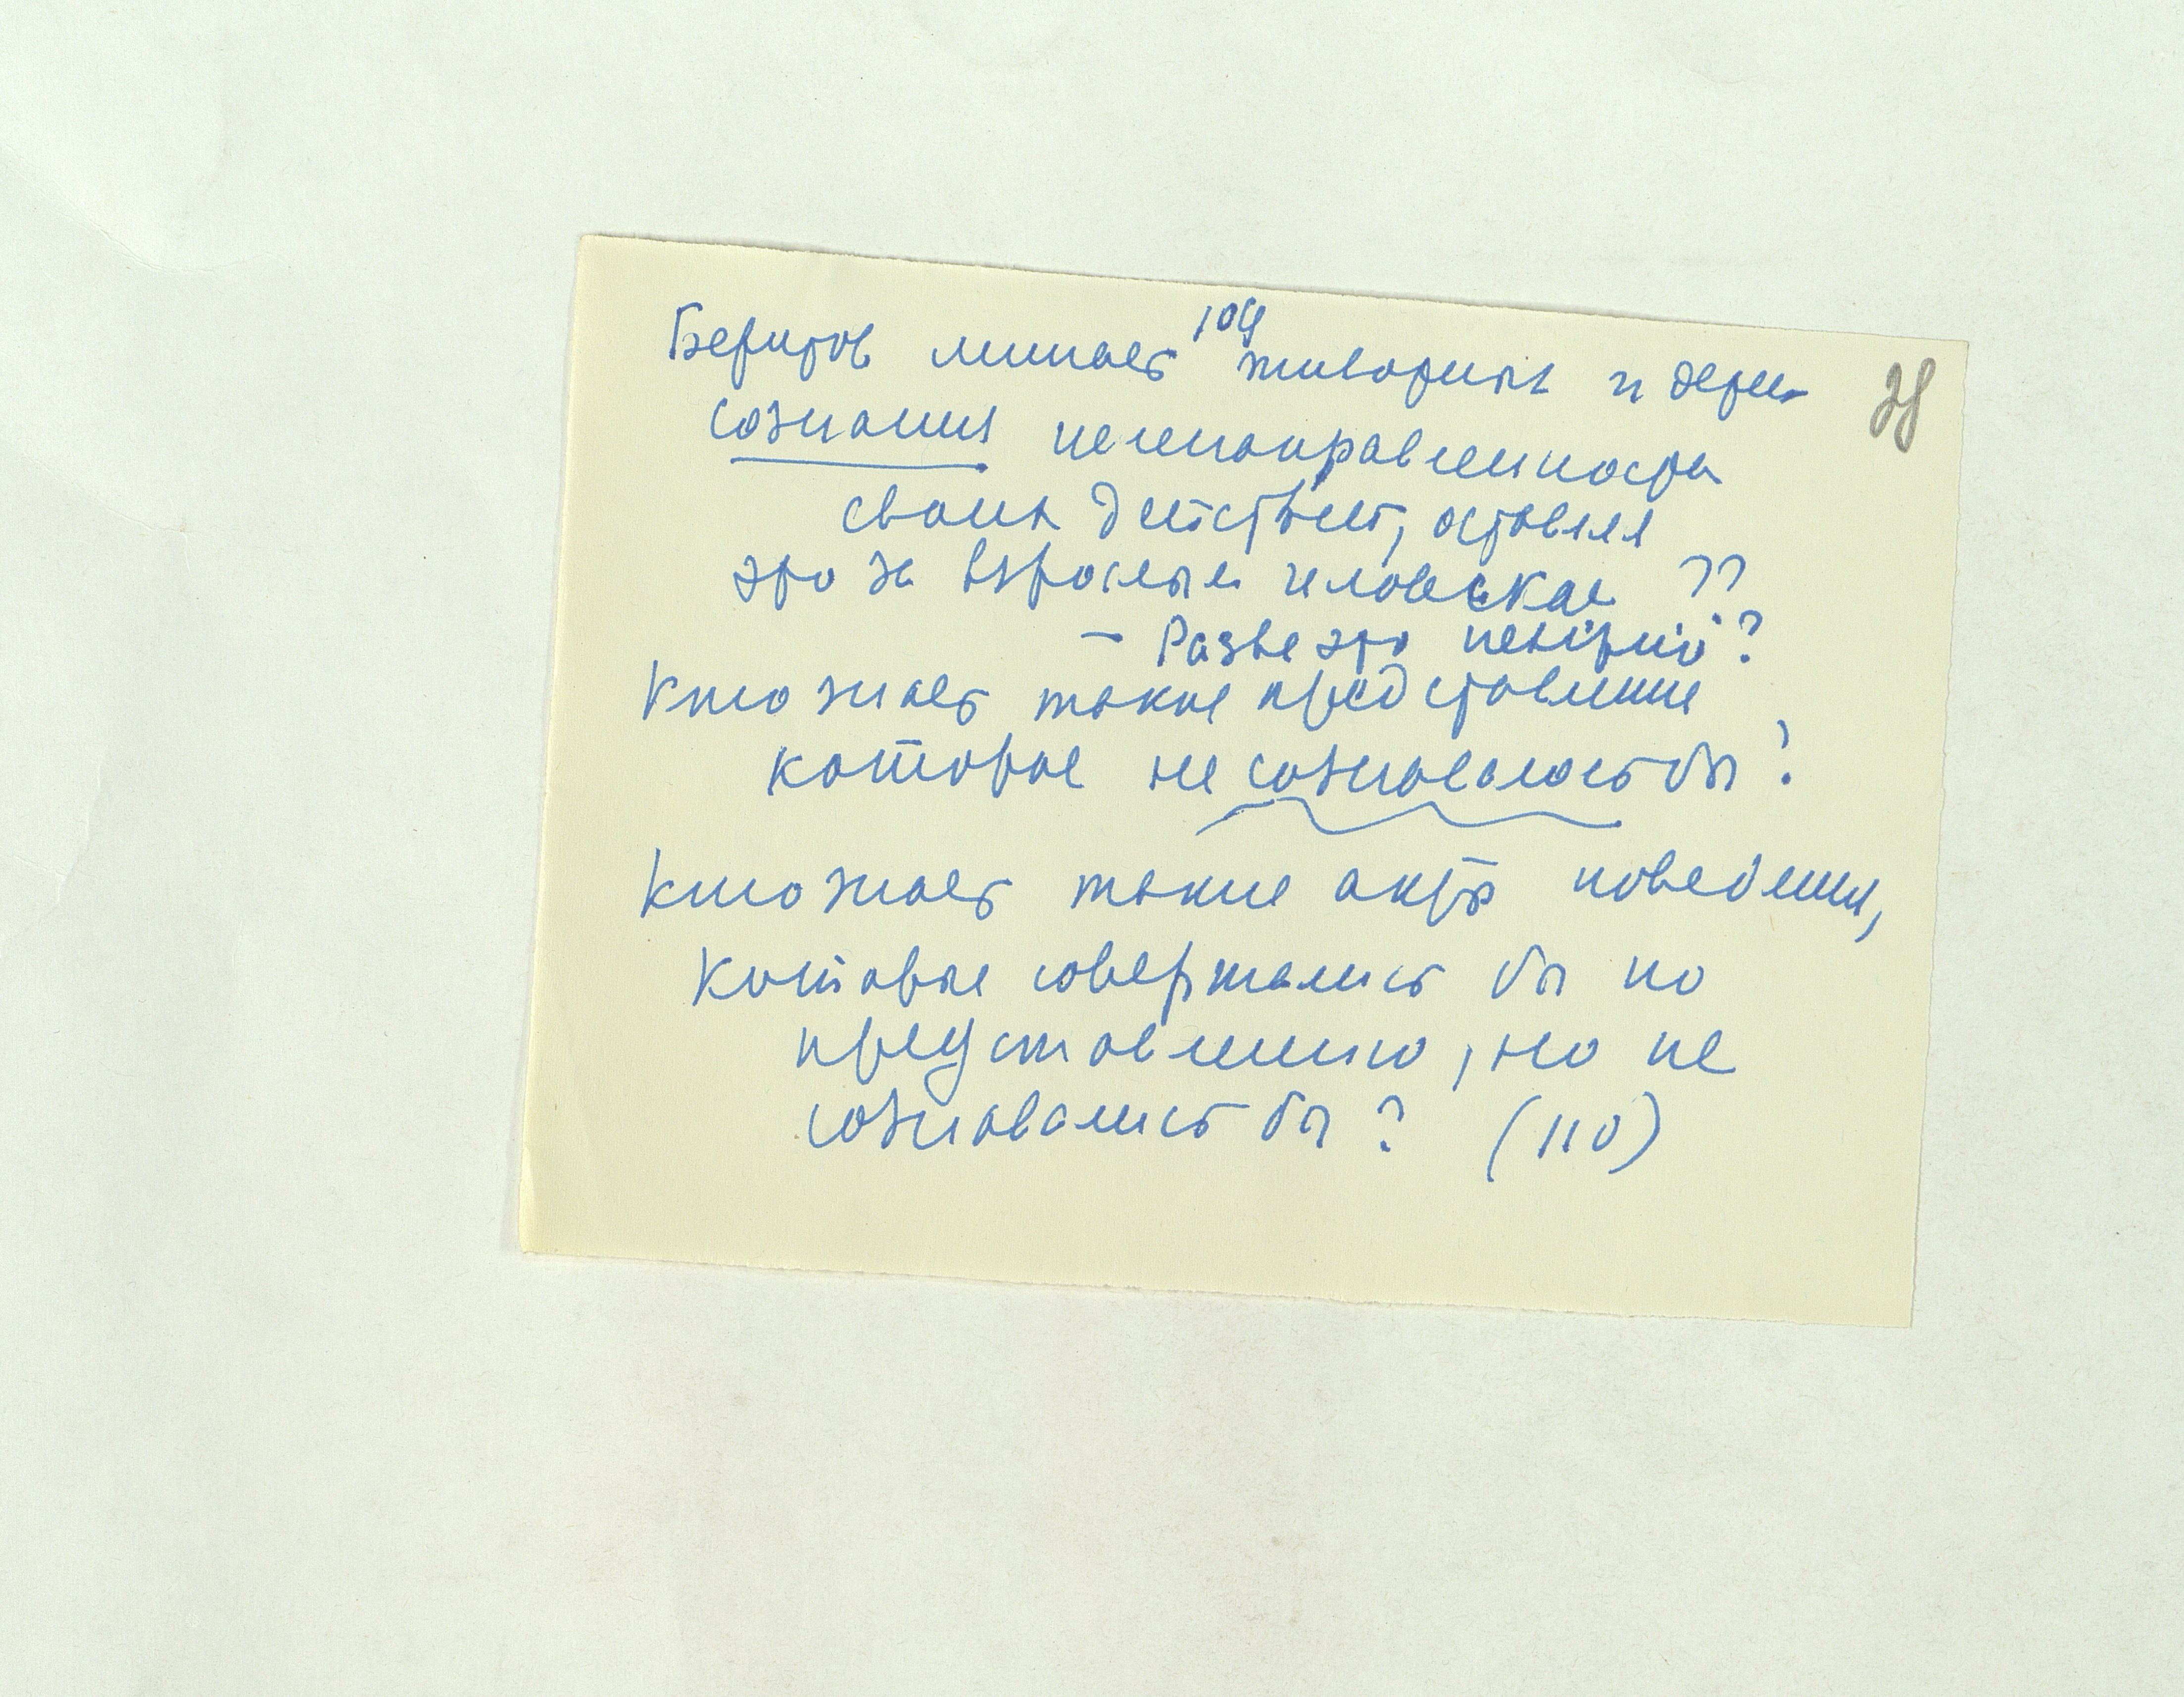 109
Беритов лишает животных и детей
сознания целенаправленности
своих действий, оставляя
это за взрослым человеком ??
– Разве это
Кто знает такие представление
которое не сознавалось бы?
Кто знает такие акты поведения,
которые совершались бы по
представлению, но не
сознавались бы? (110)